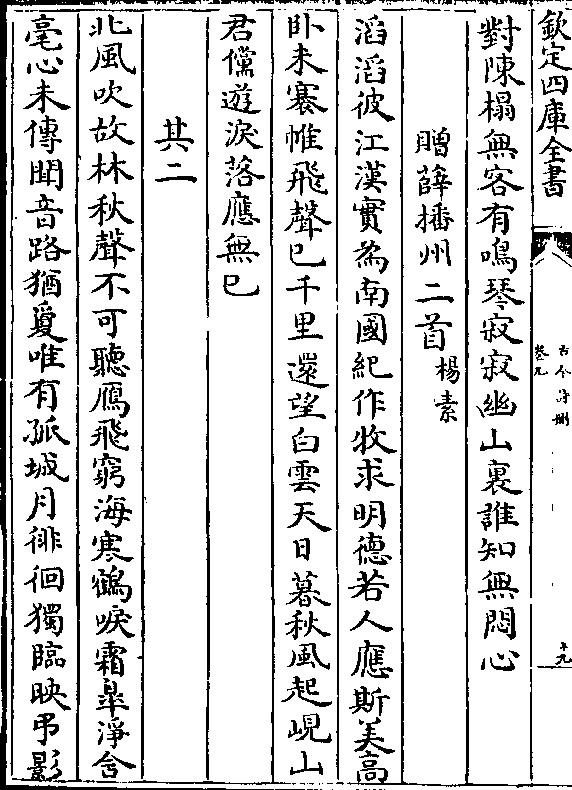 欽定四庫全書
古今詩刪
卷九
十九
對陳榻無客有鳴琴寂寂幽山裏誰知無悶心
贈薛播州二首楊素
滔滔彼江漢實為南國紀作牧求明德若人應斯美高
卧未褰帷飛聲已千里還望白雲天日暮秋風起峴山
君儻遊淚落應無已
其二
北風吹故林秋聲不可聽鴈飛窮海寒鶴唳霜臯淨含
毫心未傳聞音路猶敻唯有孤城月徘徊獨臨映弔影